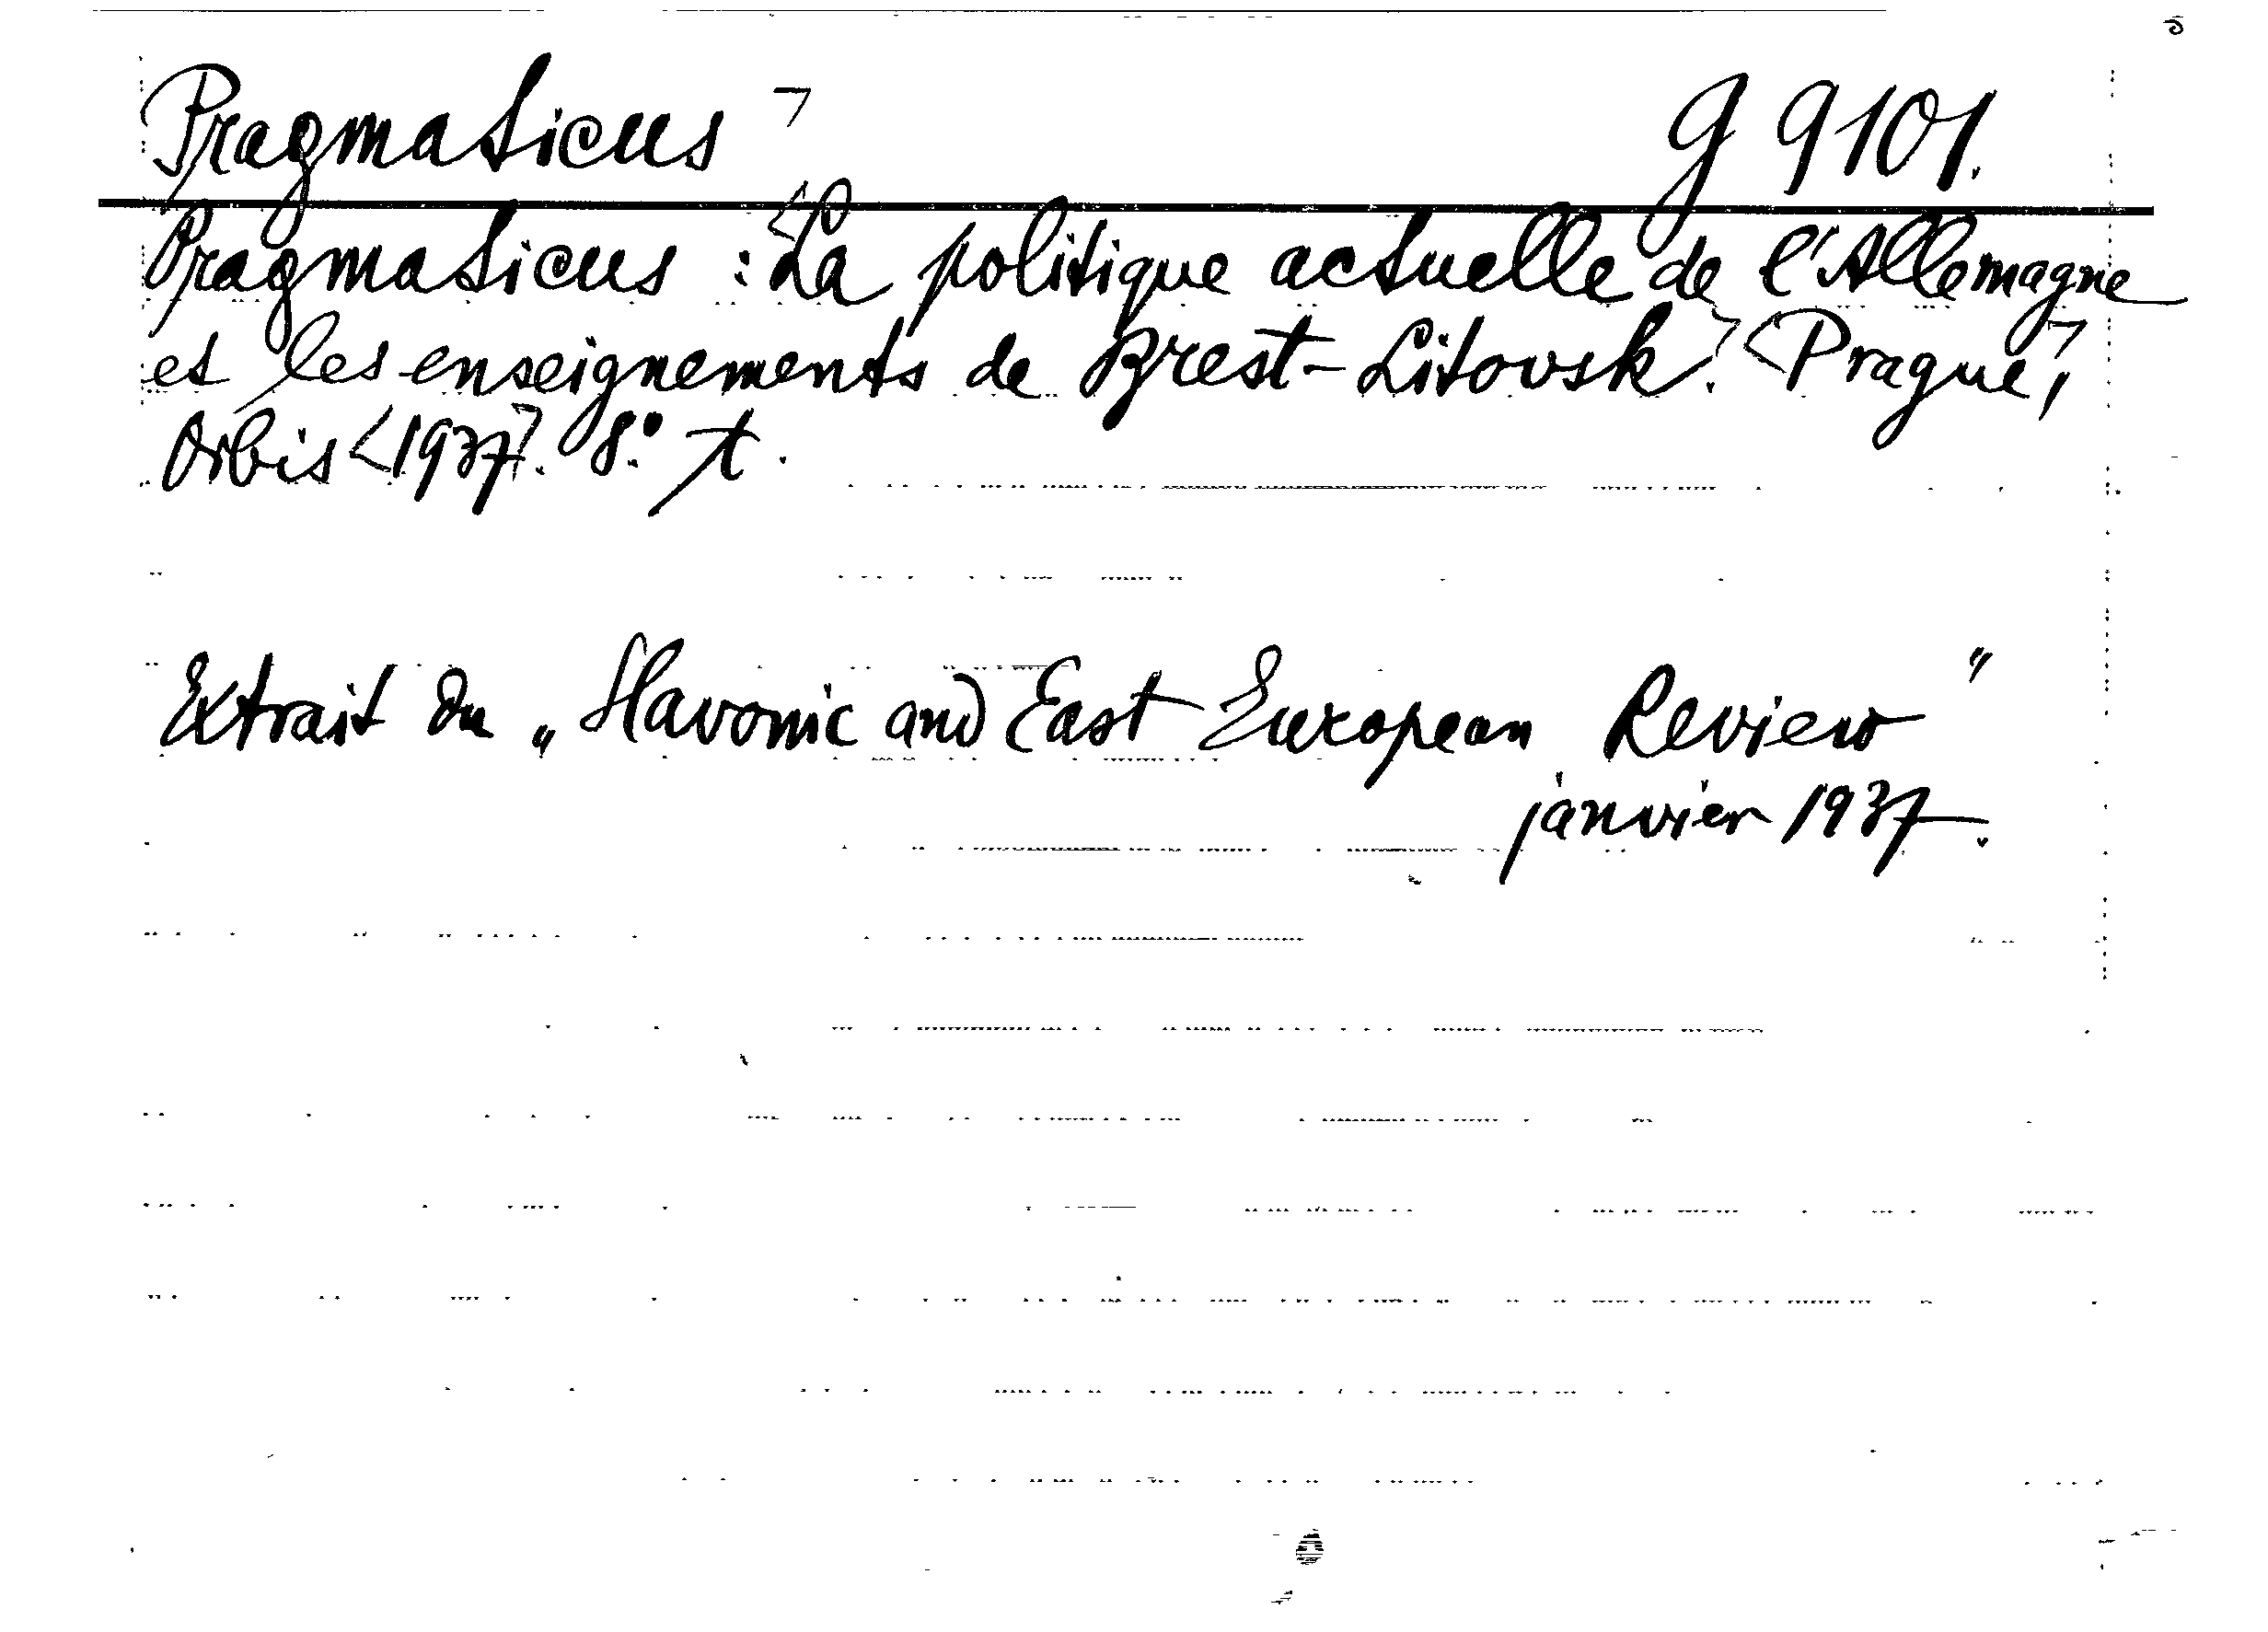 Pragmaticus⌝ g 9101.
Pragmaticus : <La politique actuelle de l'Allemagne
et les enseignements de Brest-Litovsk.> <Prague,>
Orbis <1937>. 8° t.
Extrait du „Slavonic and East European Review"
janvier 1937.